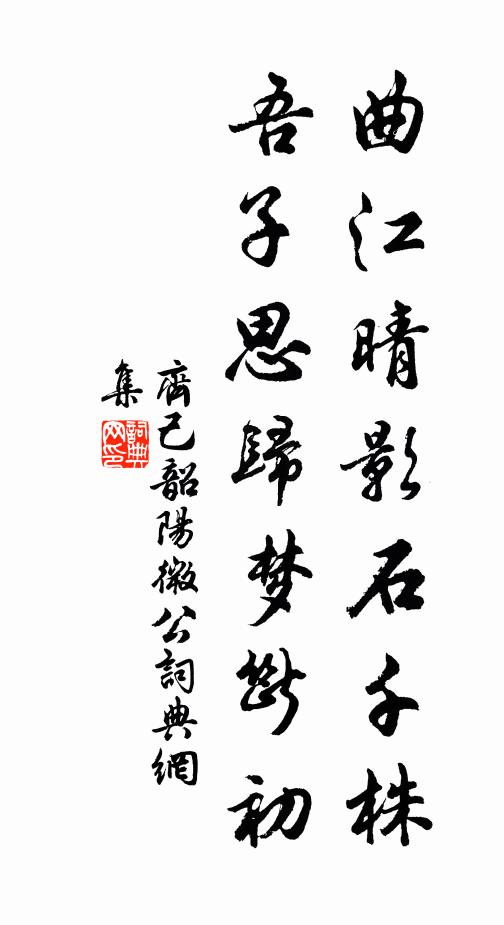 曲江晴影石千株
吾子思歸梦斷初
齊己韶陽微公詞典網
集
詞典网印